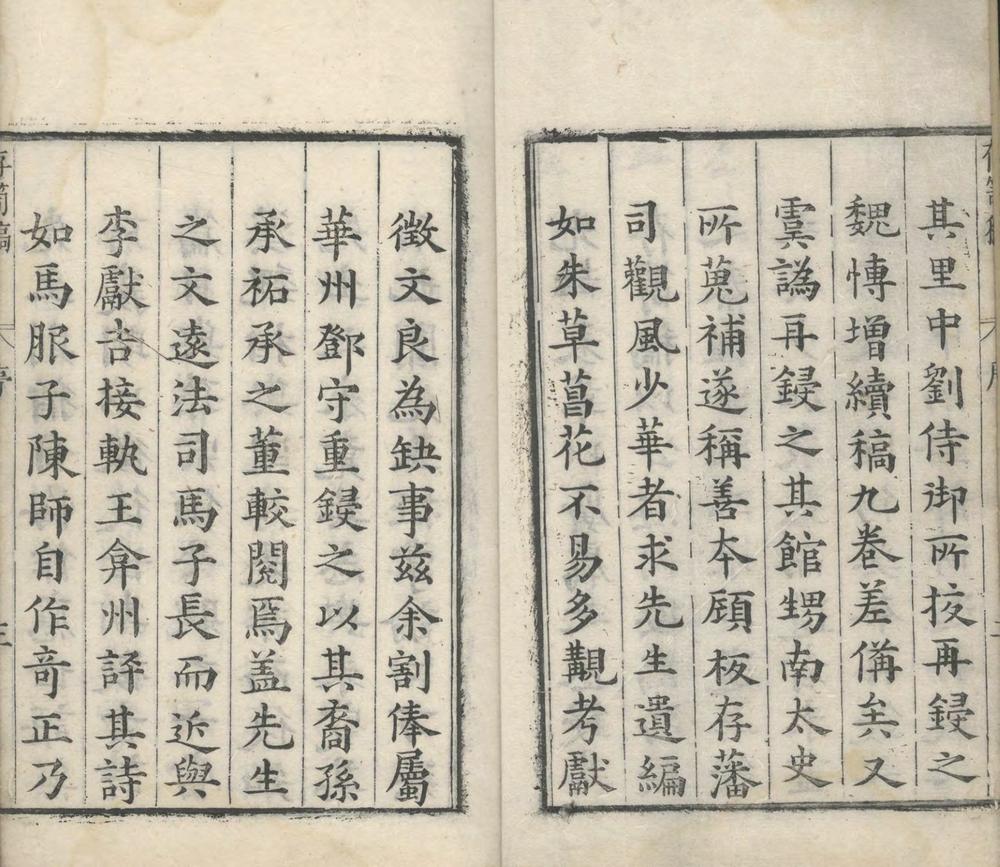 其里中劉侍御所挍再鋟之
魏慱增續稿九卷差俻矣又
虞譌再鋟之其館甥南太史
所蒐補遂稱善本顧板存藩
司觀風少華者求先生遺編
如朱草菖花不易多覯考獻
徴文良為缺事兹余割俸屬
華州鄧守重鋟之以其裔孫
承祐承之董較閲焉盖先生
之文遠法司馬子長而近與
李獻吉接軌王弇州評其詩
如馬服子陳師自作奇正乃
存笥稿